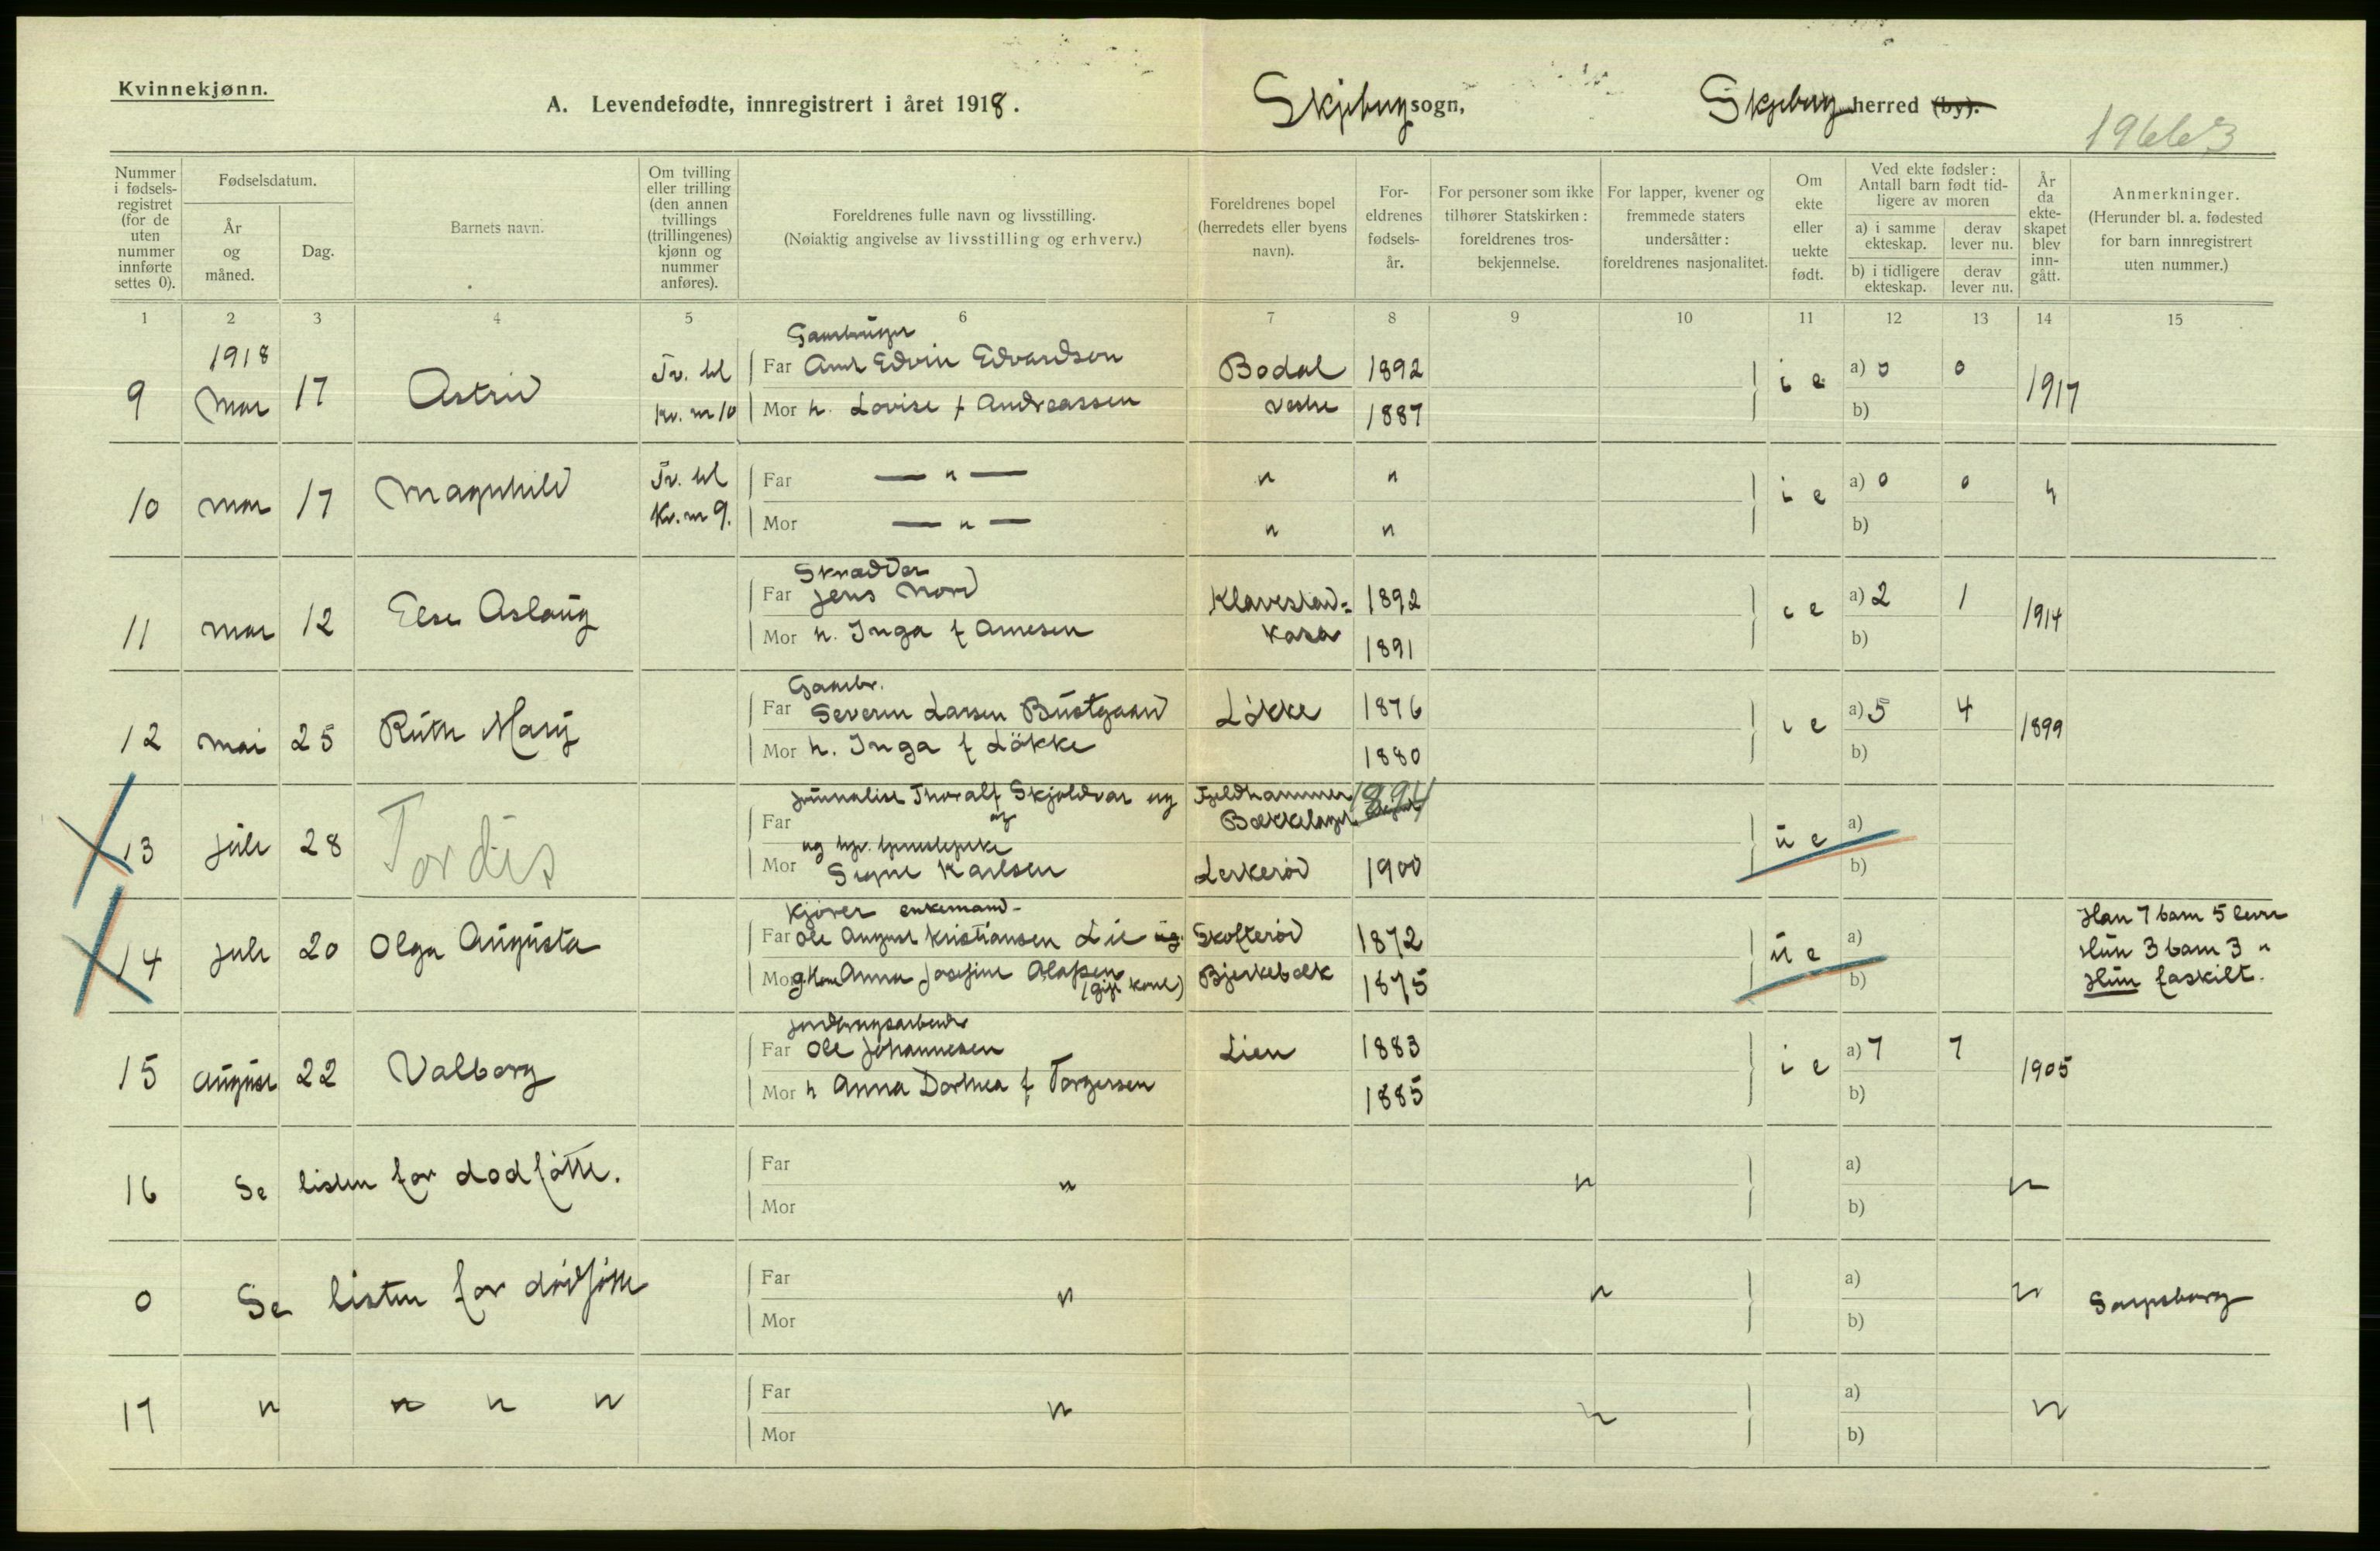 Kvinnekjønn.
A. Levendefødte, innregistrert i året 1918.
Skjeberg sogn,
Skjeberg herred (by).
19663
Nummer i fødsels-registret (for de uten nummer innførte settes 0).
Fødselsdatum.
År og måned.
Dag.
Barnets navn.
Om tvilling eller trilling (den annen tvillings (trillingenes) kjønn og nummer anføres).
Foreldrenes fulle navn og livsstilling.
(Nøiaktig angivelse av livsstilling og erhverv.)
Foreldrenes bopel (herredets eller byens navn).
For-eldrenes fødsels-år.
For personer som ikke tilhører Statskirken: foreldrenes tros-bekjennelse.
For lapper, kvener og fremmede staters undersåtter: foreldrenes nasjonalitet.
Om ekte eller uekte født.
Ved ekte fødsler: Antall barn født tid-ligere av moren
a) i samme ekteskap.
derav lever nu.
b) i tidligere ekteskap.
derav lever nu.
År da ekte-skapet blev inn-gått.
Anmerkninger.
(Herunder bl. a. fødested for barn innregistrert uten nummer.)
1 2 3 4 5 6 7 8 9 10 11 12 13 14 15
1918
9 Mar 17 Astrid Tv. til Kv. nr 10
Far Edvin Edvardsen Bodal 1892 i e a) 0 0 1917
Mor h. Lovise f Andreassen Vestre 1887 b)
10 mar 17 Magnhild Tv. til Kv. nr 9.
Far — " — " " i e a) 0 0 "
Mor — " — " " b)
Skrædder
11 mar 12 Else Aslaug
Far Jens Nord Klavestad= 1892 i e a) 2 1 1914
Mor h. Inga f Arnesen kasa 1891 b)
Gaardbr.
12 mai 25 Ruth Mary
Far Severin Larsen Bustgaard Løkke 1876 i e a) 5 4 1899
Mor h. Inga f Løkke 1880 b)
13 juli 28 Tordis
Far journalist Thoralf Skjoldvar ug Fjeldhammer Bækkelaget 1894 u e a)
Mor ug Signe Karlsen Lerkerød 1900 b)
Kjører enkemand-
14 juli 20 Olga Augusta
Far Ole August Kristiansen Lie ug. Skofterød 1872 u e a)
Mor Anna Josefine Olafsen (gift kone) Bjerkebæk 1875 b)
Han 7 barn 5 lever
Hun 3 barn 3 "
Hun fraskilt.
jordbrugsarbeider
15 august 22 Valborg
Far Ole Johannesen Lien 1883 i e a) 7 7 1905
Mor h Anna Dorthea f Torgersen 1885 b)
16 Se listen for dødfødte.
Far " " a) "
Mor b)
0 Se listen for dødfødte
Far " " a) " Sarpsborg
Mor b)
17 " " " "
Far " " a) "
Mor b)